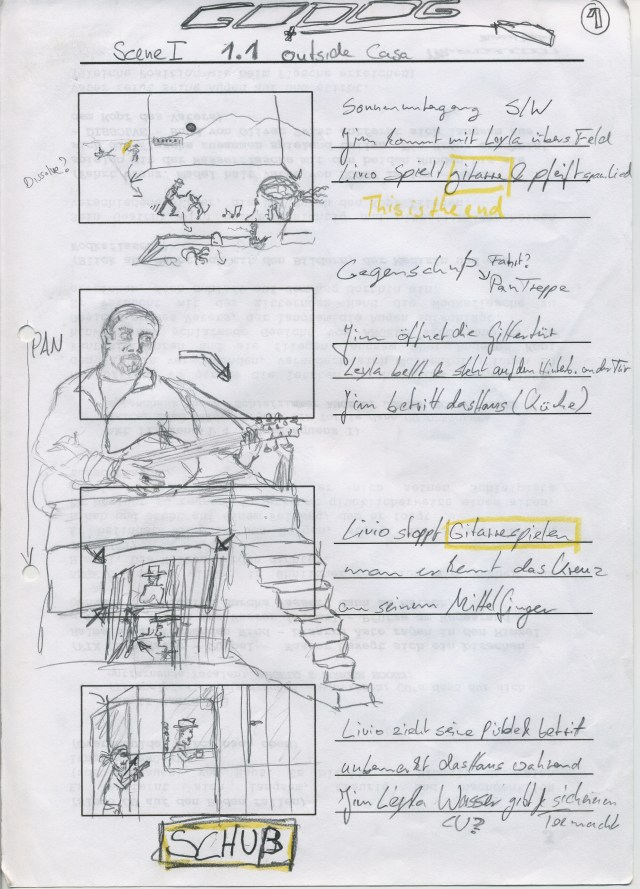 GODOG
1
Scene I 1.1 outside Casa
Sonnenuntergang S/W
Jim kommt mit Leyla übers Feld
Dissolve?
Livio spielt Gitarre & pfeift
This is the end
Gegenschuß Fahrt?
Pan Treppe
PAN
Jim öffnet die Gittertür
Leyla bellt & steht auf den Hinterb. an der Tür
Jim betritt das Haus (Küche)
Livio stoppt Gitarrespielen
man erkennt das Kreuz
an seinem Mittelfinger
Livio zieht seine Pistole & betritt
unbemerkt das Haus während
Jim Leyla Wasser gibt & sich einen
CU? macht
SCHUß